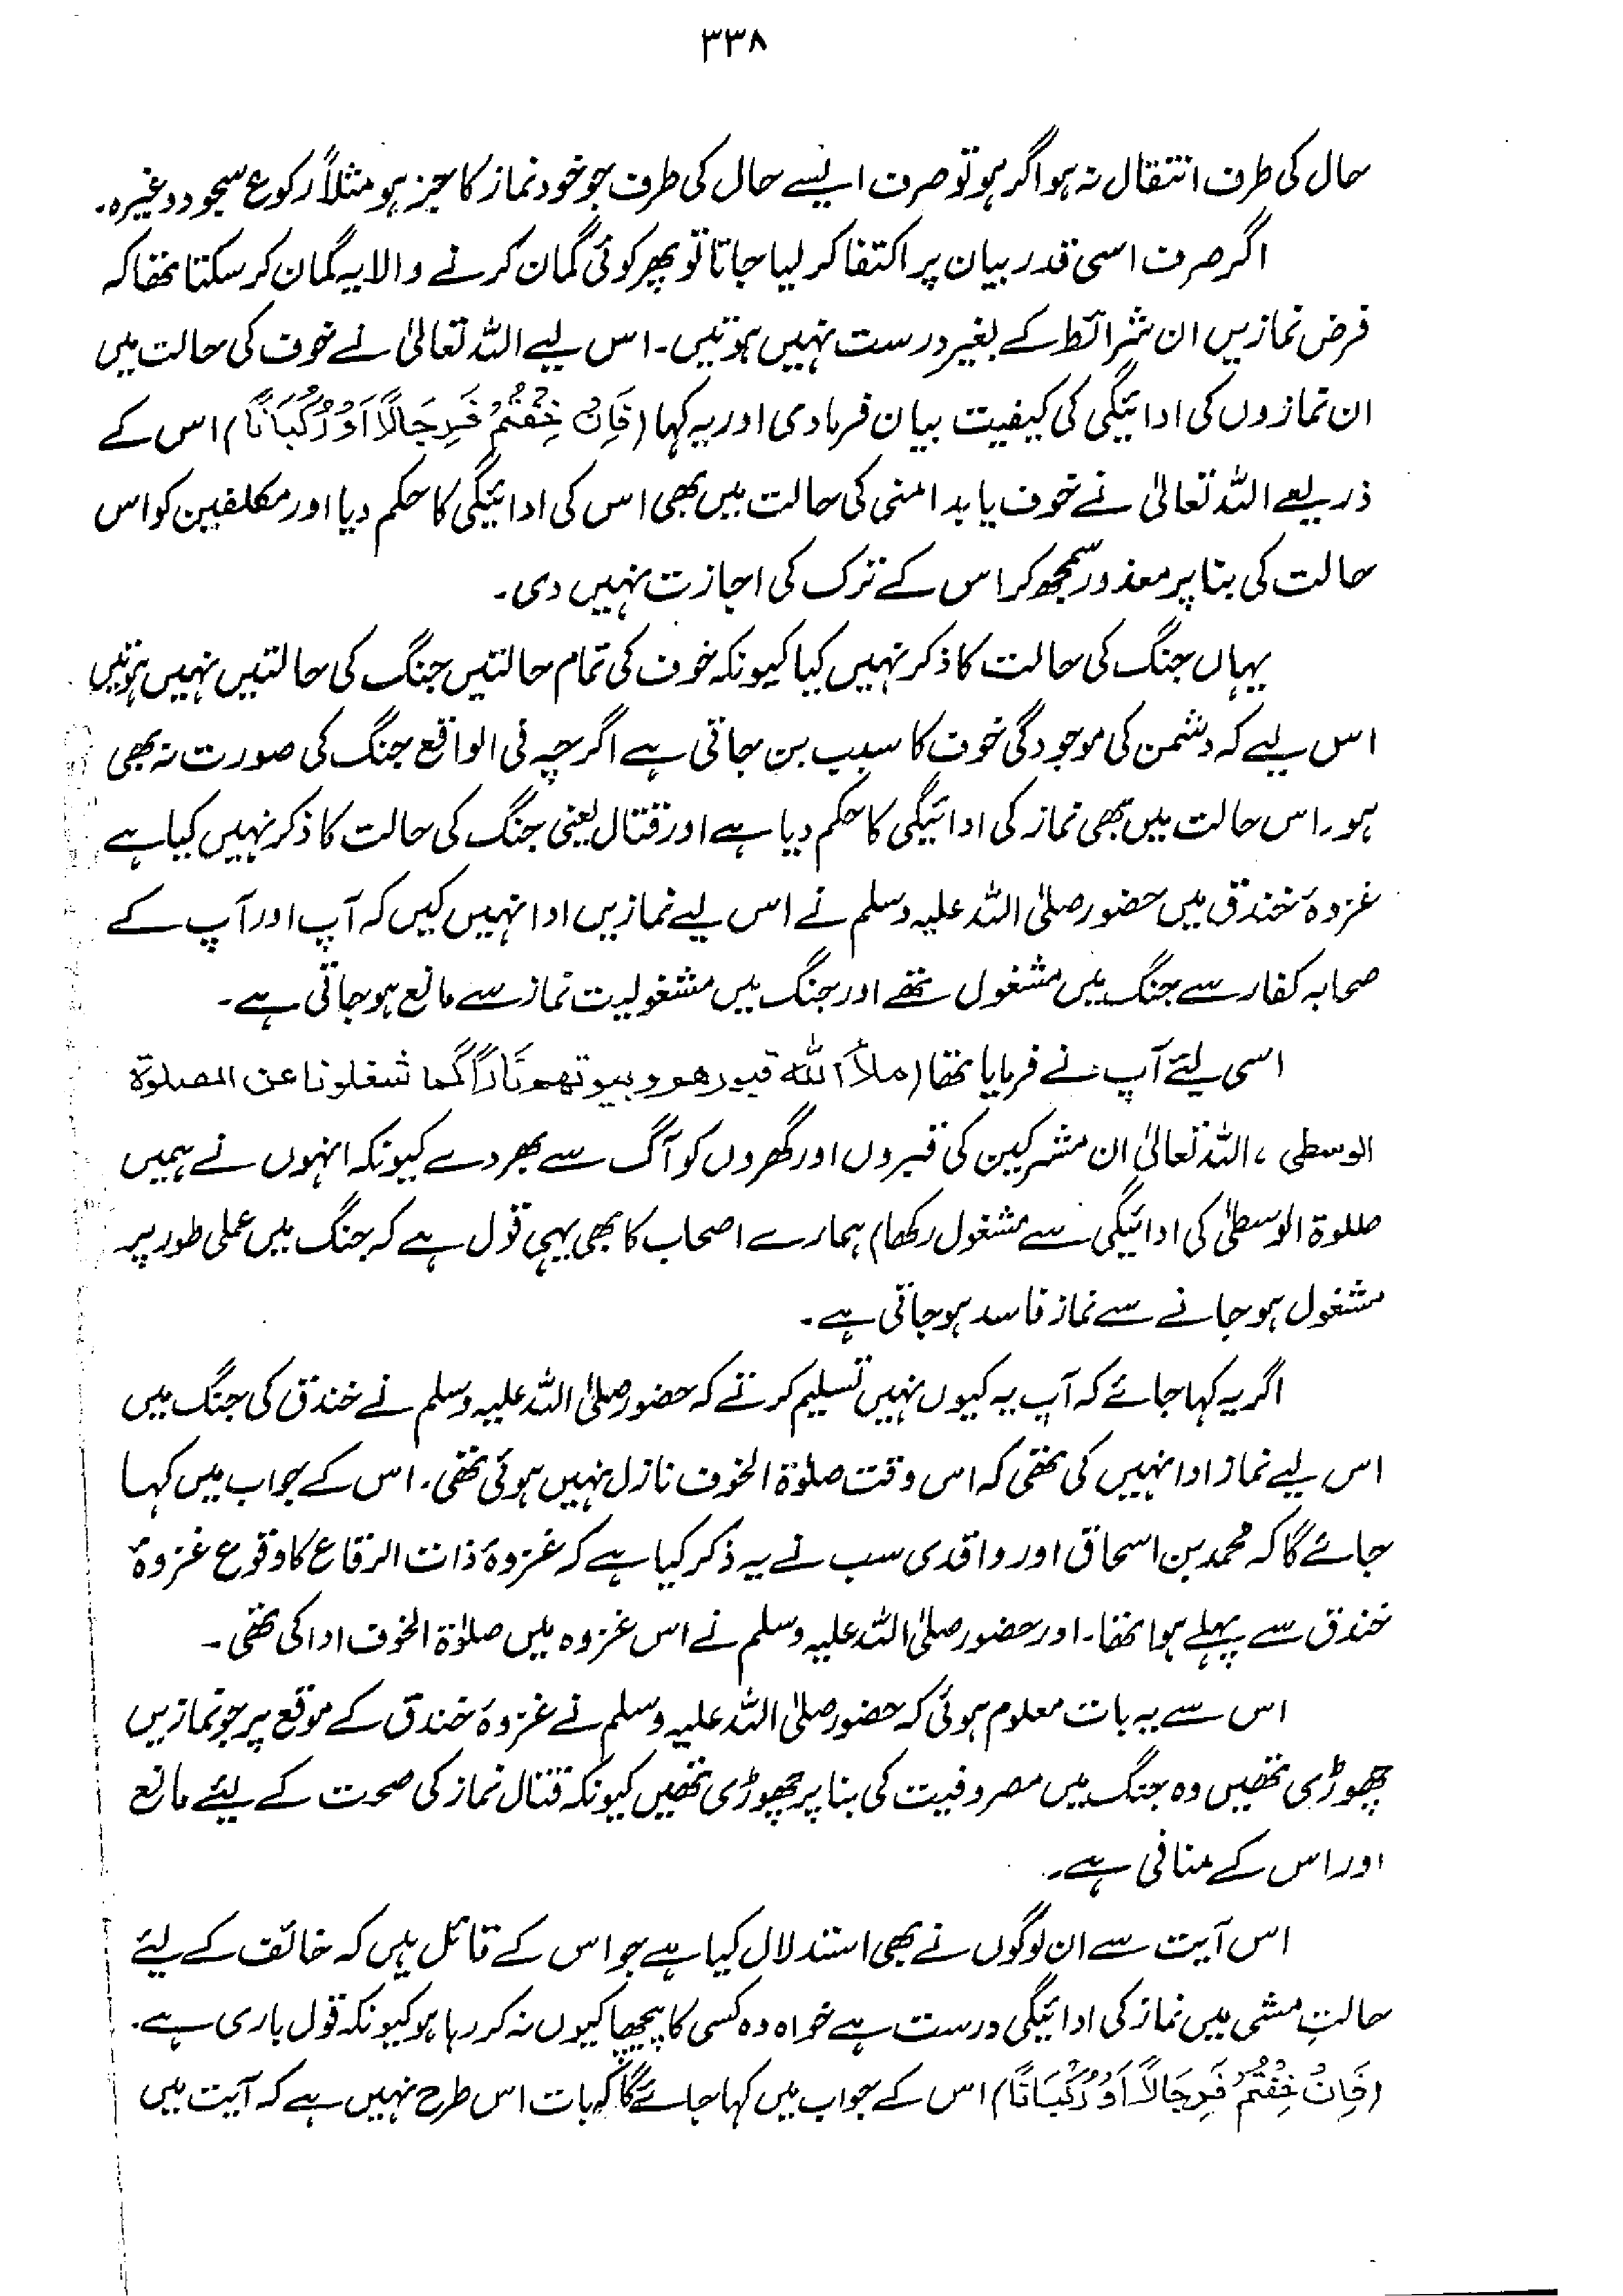 ۳۳۸
حال کی طرف انتقال نہ ہو اگر ہو تو صرف ایسے حال کی طرف جو خود نماز کا جز ہو مثلاً رکوع سجود وغیرہ۔
اگر صرف اسی قدر بیان پر اکتفا کر لیا جاتا تو پھر کوئی گمان کرنے والا یہ گمان کر سکتا تھا کہ
فرض نمازیں ان شرائط کے بغیر درست نہیں ہوتیں۔ اس لیے اللہ تعالیٰ نے خوف کی حالت میں
ان نمازوں کی ادائیگی کی کیفیت بیان فرمادی اور یہ کہا (فَاِنْ خِفْتُمْ فَرِجَالًا اَوْ رُكْبَانًا) اس کے
ذریعے اللہ تعالیٰ نے خوف یا بدامنی کی حالت میں بھی اس کی ادائیگی کا حکم دیا اور مکلفین کو اس
حالت کی بنا پر معذور سمجھ کر اس کے ترک کی اجازت نہیں دی۔
یہاں جنگ کی حالت کا ذکر نہیں کیا کیونکہ خوف کی تمام حالتیں جنگ کی حالتیں نہیں ہوتیں
اس لیے کہ دشمن کی موجودگی خوف کا سبب بن جاتی ہے اگرچہ فی الواقع جنگ کی صورت نہ بھی
ہو۔ اس حالت میں بھی نماز کی ادائیگی کا حکم دیا ہے اور قتال یعنی جنگ کی حالت کا ذکر نہیں کیا ہے
غزوۂ خندق میں حضور صلی اللہ علیہ وسلم نے اس لیے نمازیں ادا نہیں کیں کہ آپ اور آپ کے
صحابہ کفار سے جنگ میں مشغول تھے اور جنگ میں مشغولیت نماز سے مانع ہو جاتی ہے۔
اسی لئے آپ نے فرمایا تھا (ملأ الله قبورهم وبيوتهم نارًا كما شغلونا عن الصلوة
الوسطى ، اللہ تعالیٰ ان مشرکین کی قبروں اور گھروں کو آگ سے بھر دے کیونکہ انہوں نے ہمیں
صلوۃ الوسطیٰ کی ادائیگی سے مشغول رکھا) ہمارے اصحاب کا بھی یہی قول ہے کہ جنگ میں عملی طور پر
مشغول ہو جانے سے نماز فاسد ہو جاتی ہے۔
اگر یہ کہا جائے کہ آپ یہ کیوں نہیں تسلیم کرتے کہ حضور صلی اللہ علیہ وسلم نے خندق کی جنگ میں
اس لیے نماز ادا نہیں کی تھی کہ اس وقت صلوٰۃ الخوف نازل نہیں ہوئی تھی۔ اس کے جواب میں کہا
جائے گا کہ محمد بن اسحاق اور واقدی سب نے یہ ذکر کیا ہے کہ غزوۂ ذات الرقاع کا وقوع غزوۂ
خندق سے پہلے ہوا تھا۔ اور حضور صلی اللہ علیہ وسلم نے اس غزوہ میں صلوٰۃ الخوف ادا کی تھی۔
اس سے یہ بات معلوم ہوئی کہ حضور صلی اللہ علیہ وسلم نے غزوۂ خندق کے موقع پر جو نمازیں
چھوڑی تھیں وہ جنگ میں مصروفیت کی بنا پر چھوڑی تھیں کیونکہ قتال نماز کی صحت کے لیئے مانع
اور اس کے منافی ہے۔
اس آیت سے ان لوگوں نے بھی استدلال کیا ہے جو اس کے قائل ہیں کہ خائف کے لیئے
حالتِ مشی میں نماز کی ادائیگی درست ہے خواہ وہ کسی کا پیچھا کیوں نہ کر رہا ہو کیونکہ قول باری ہے۔
(فَاِنْ خِفْتُمْ فَرِجَالًا اَوْ رُكْبَانًا) اس کے جواب میں کہا جائے گا کہ بات اس طرح نہیں ہے کہ آیت میں